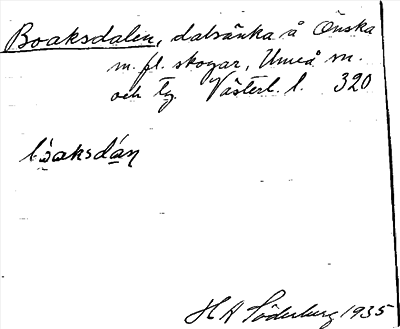 Boaksdalen, dalsänka å Önska
m. fl. skogar, Umeå m.
och tg. Västerb. l. 320
bòaksdáṇ
H A Söderberg 1935